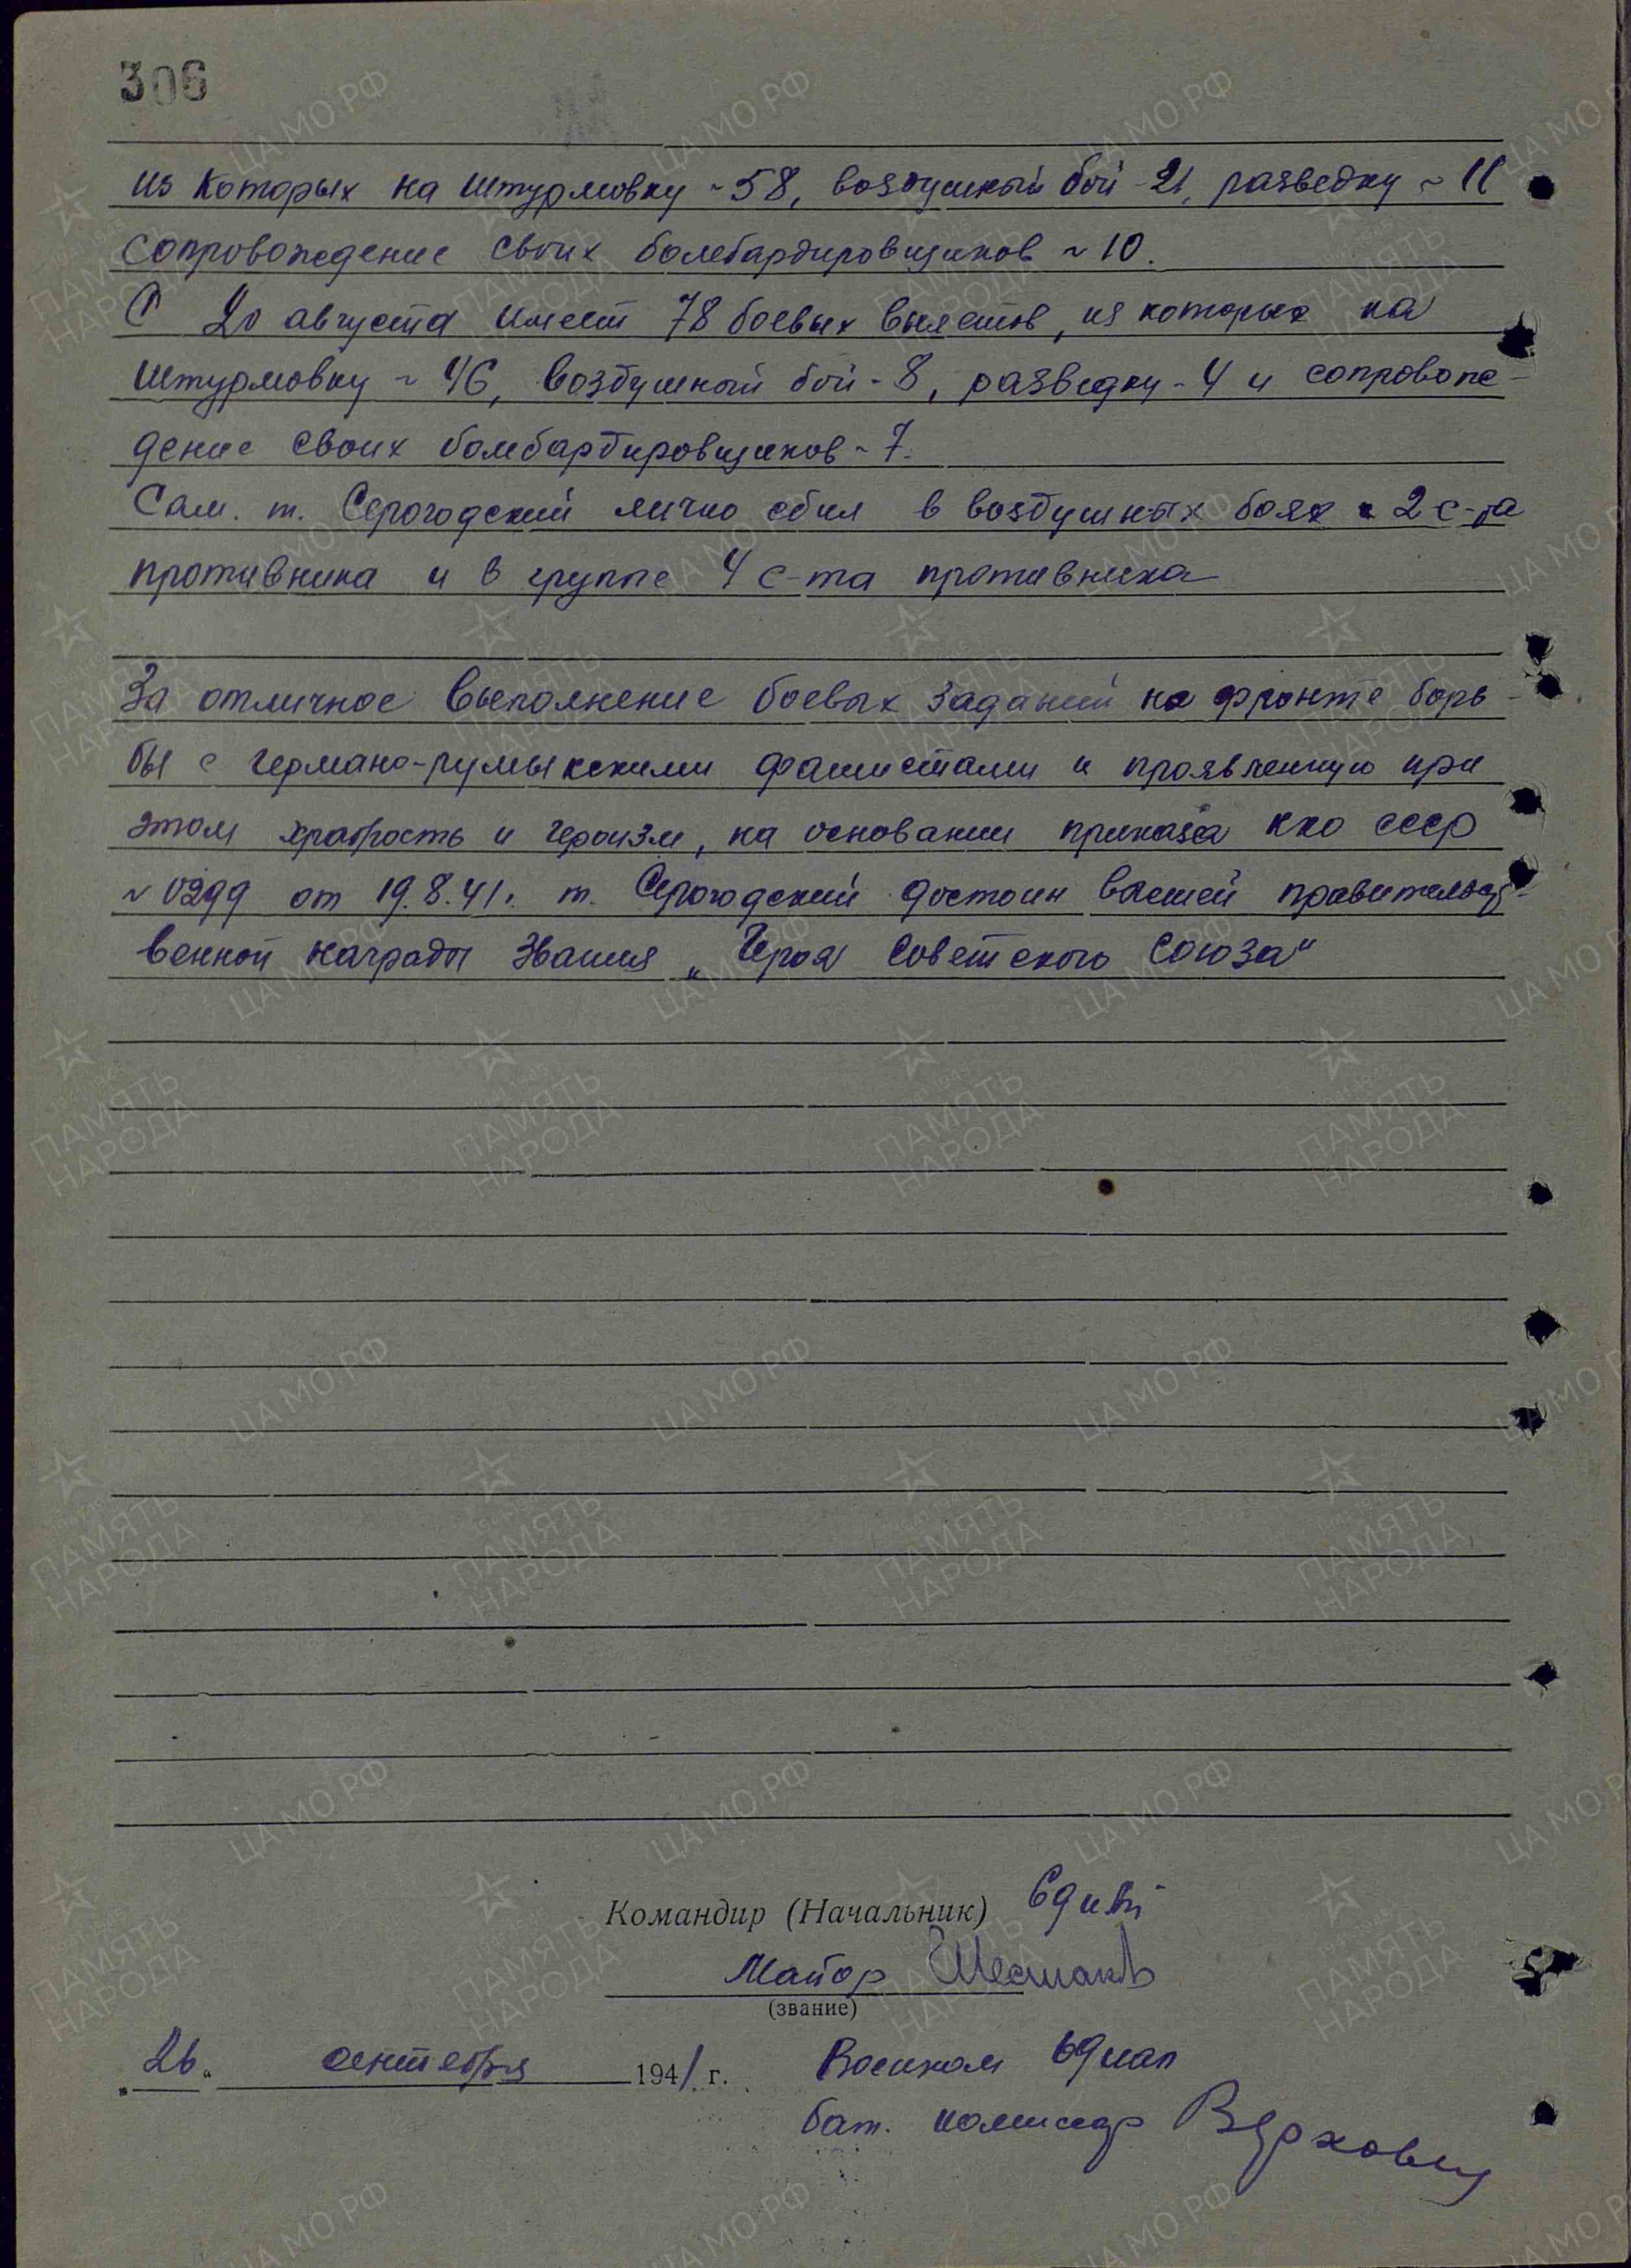 306
из которых на штурмовку ~ 58, воздушный бой - 21, разведку ~ 11
сопровождение своих бомбардировщиков ~ 10.
С 20 августа имеет 78 боевых вылетов, из которых на
штурмовку ~ 46, воздушный бой - 8, разведку - 4 и сопровож-
дение своих бомбардировщиков ~ 7.
Сам. т. Серогодский лично сбил в воздушных боях 2 с-та
противника и в группе 4 с-та противника
За отличное выполнение боевых заданий на фронте борь-
бы с германо-румынскими фашистами и проявленную при
этом храбрость и героизм, на основании приказа НКО СССР
~ 0299 от 19.8.41г. т. Серогодский достоин высшей правительст-
венной награды звания „Героя Советского Союза"
Командир (Начальник) 69 иап
Майор Шестаков
(звание)
„26" сентября 1941 г.
Военком 69 иап
бат. комиссар Верховец
ЦА МО РФ
ПАМЯТЬ НАРОДА